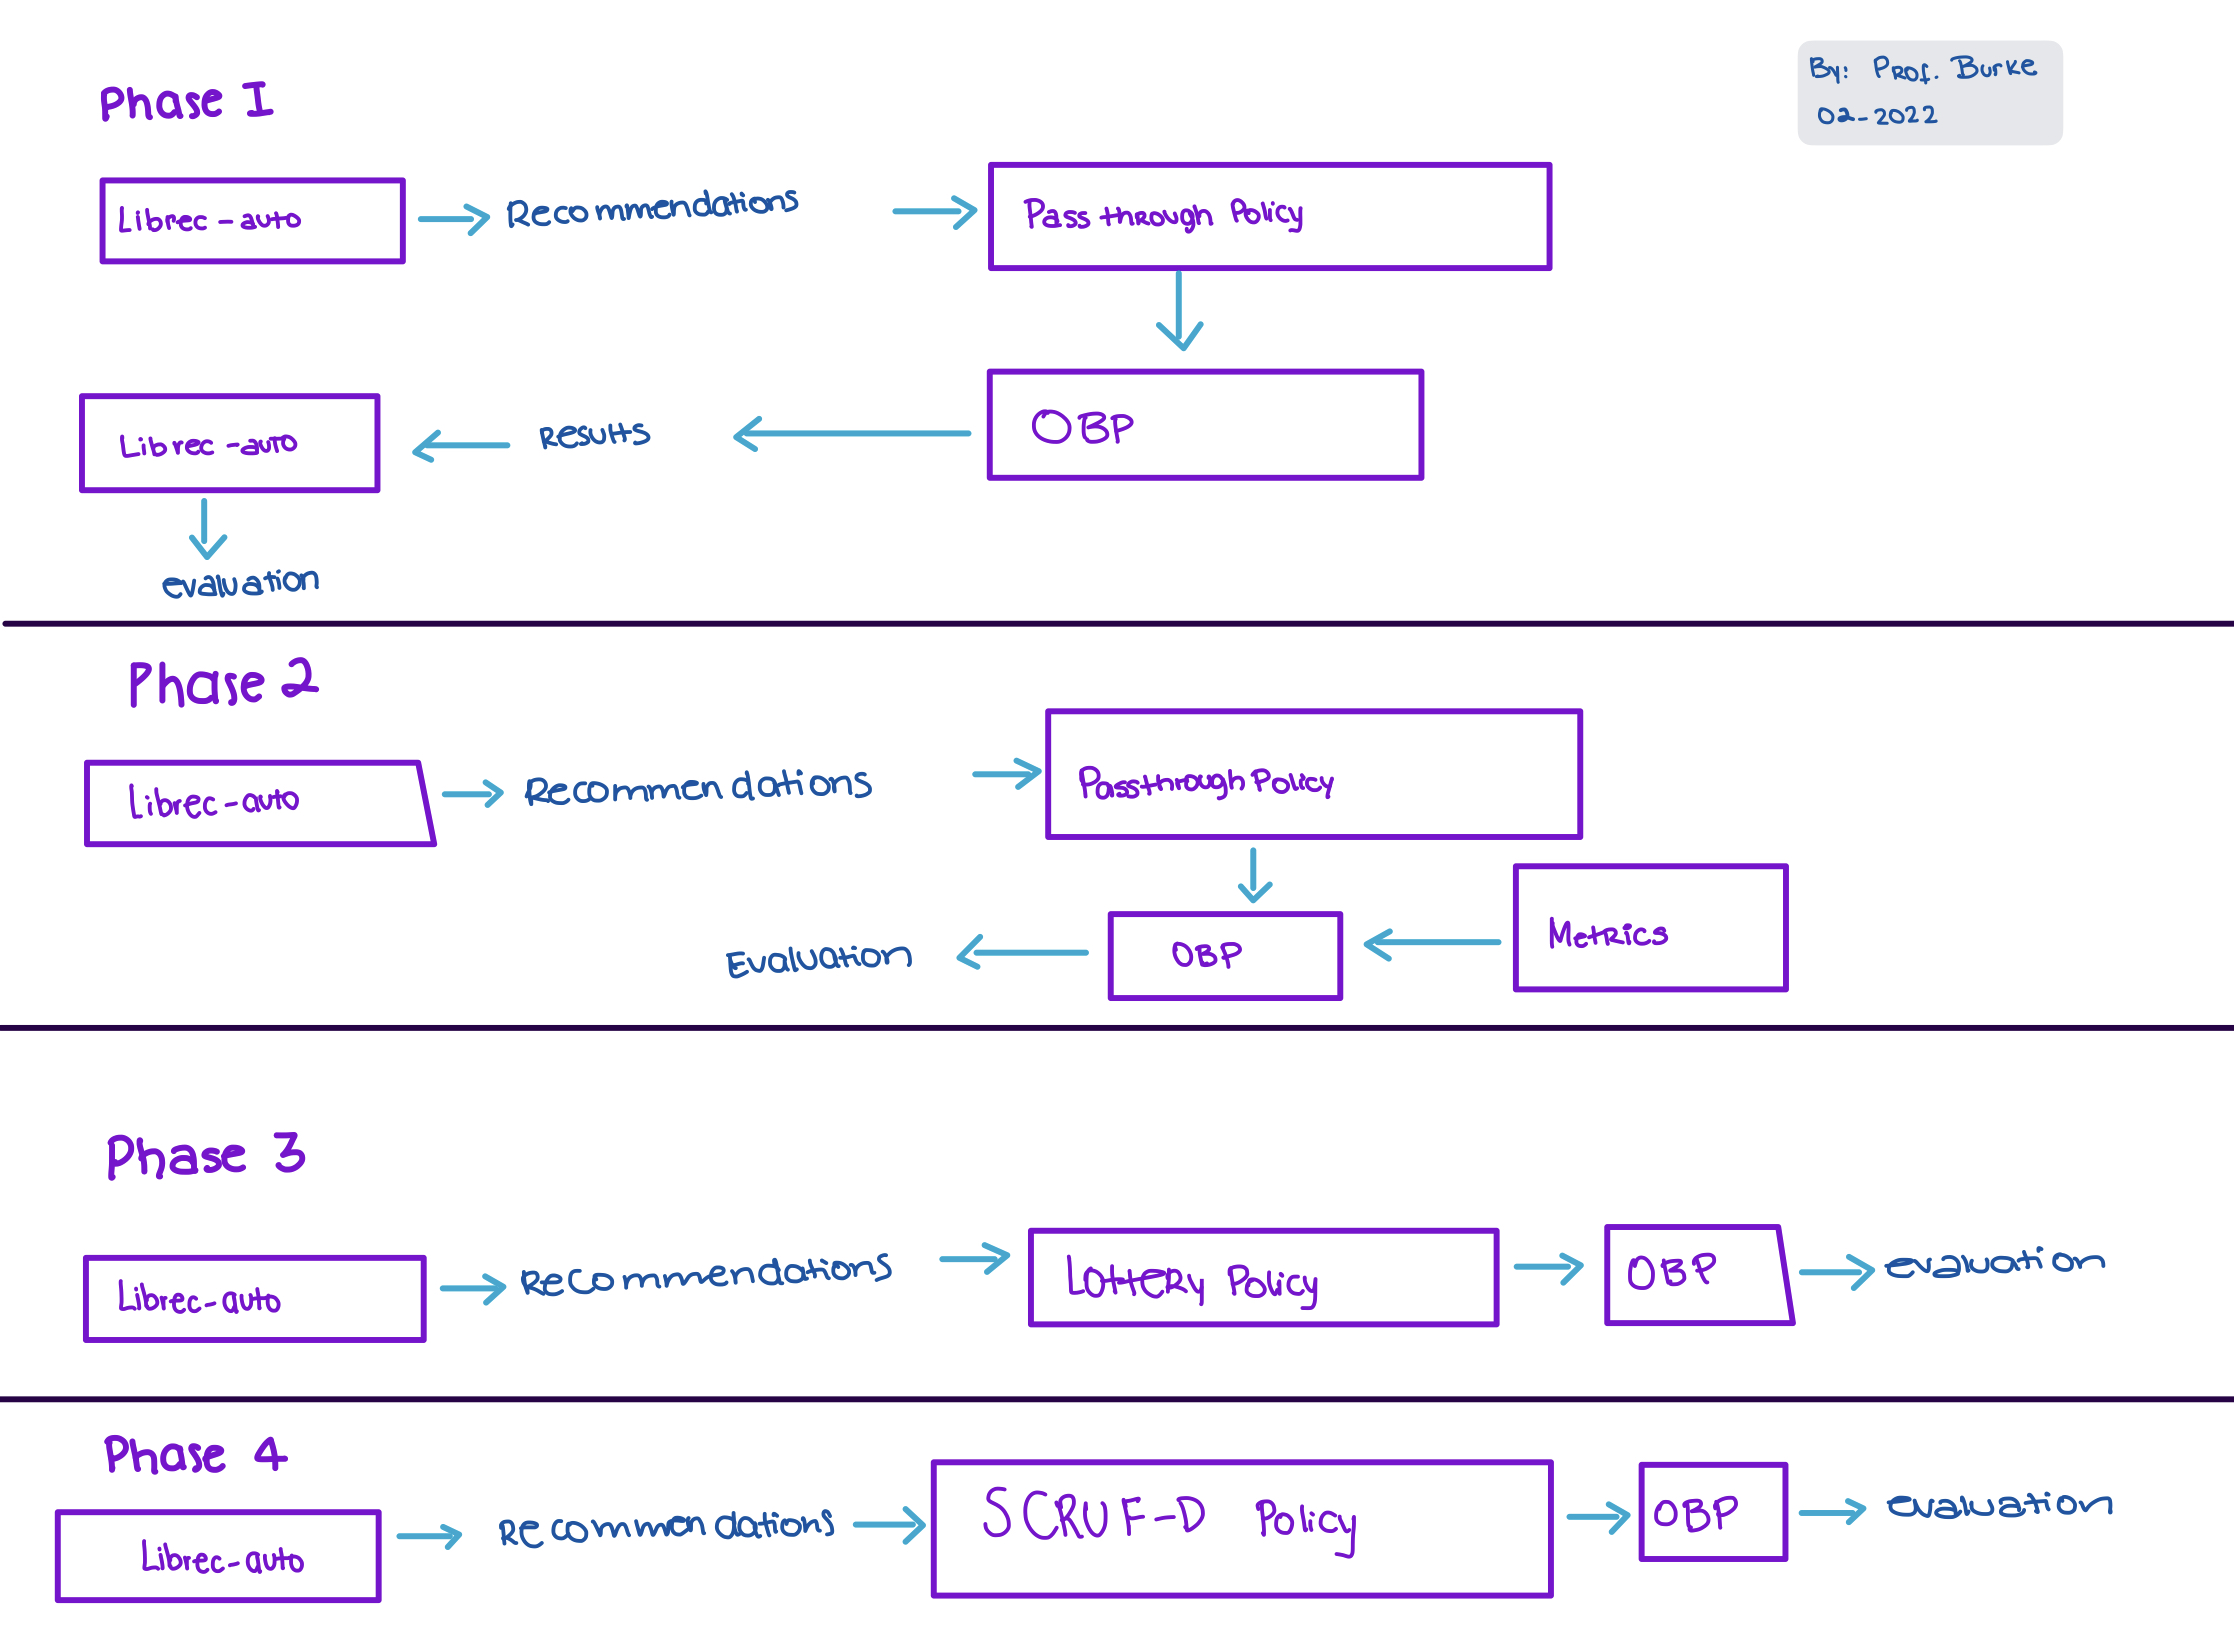 Phase 1
By: Prof. Burke
02-2022
Librec-auto
Recommendations
Pass through Policy
Librec-auto
Results
OBP
evaluation
Phase 2
Librec-auto
Recommendations
Passthrough Policy
Evaluation
OBP
Metrics
Phase 3
Librec-auto
Recommendations
Lottery Policy
OBP
evaluation
Phase 4
Librec-auto
Recommendations
SCRUF-D Policy
OBP
evaluation